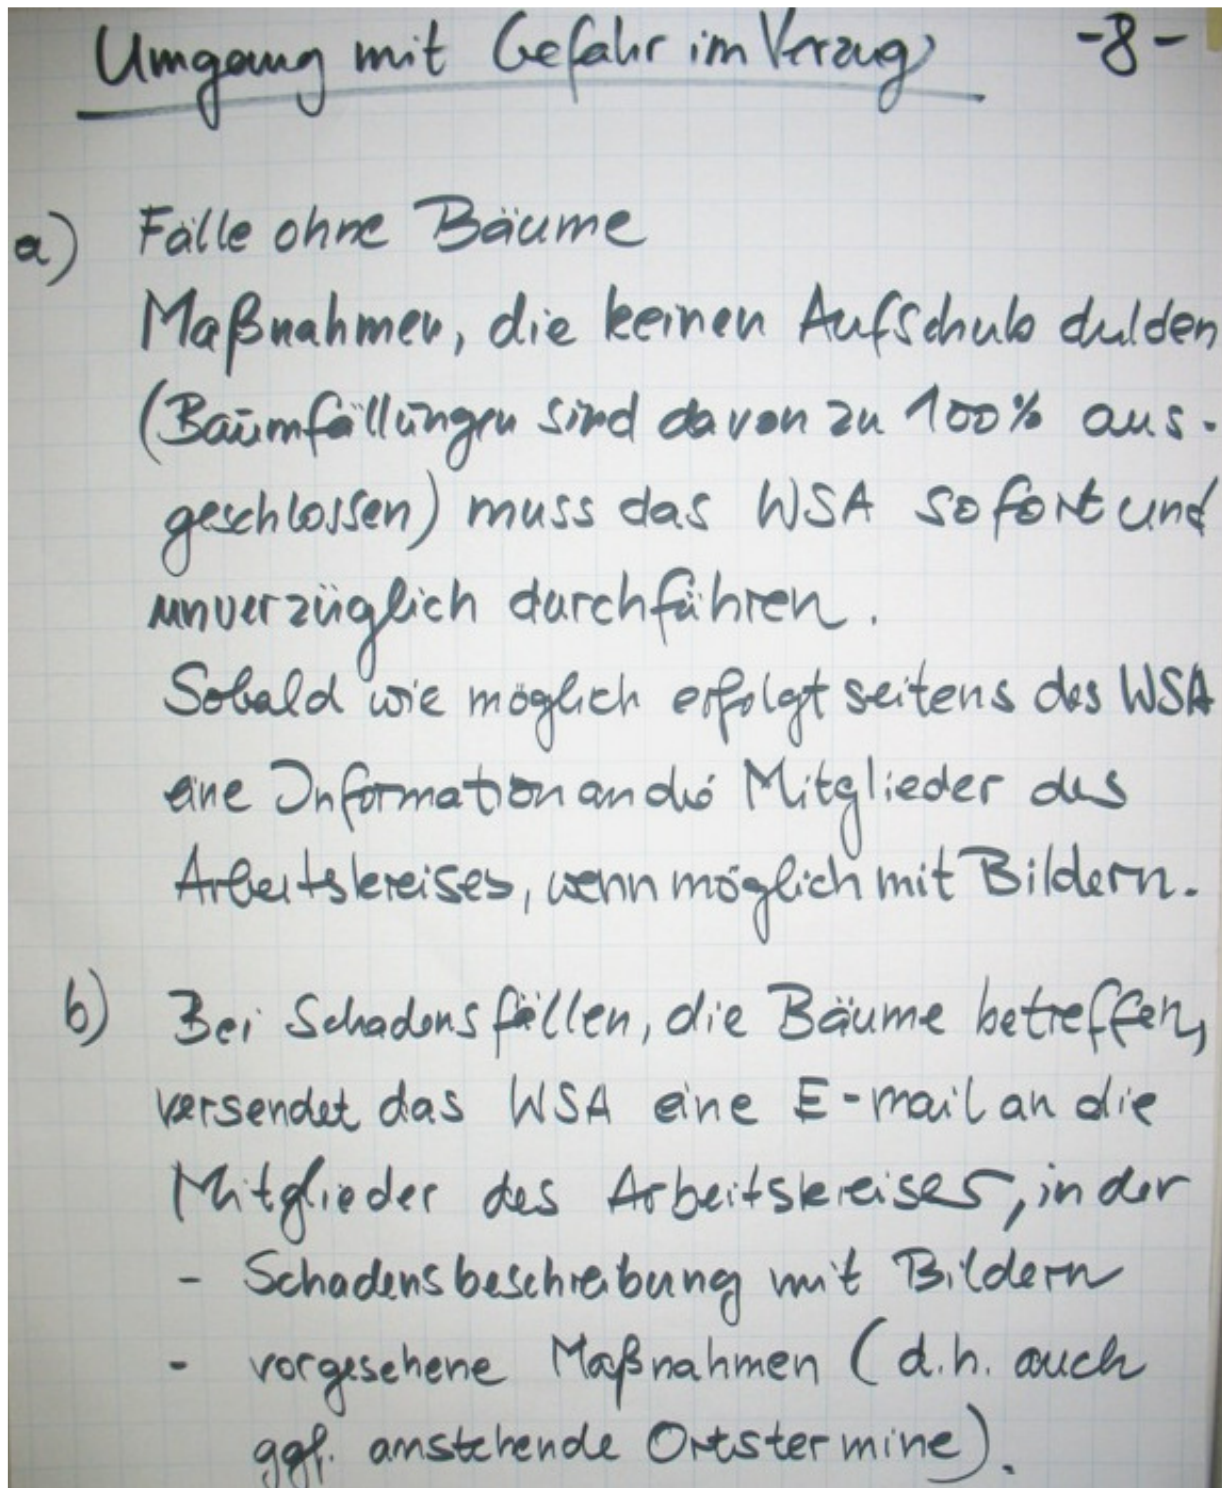 Umgang mit Gefahr im Verzug -8-
a) Fälle ohne Bäume
Maßnahmen, die keinen Aufschub dulden
(Baumfällungen sind davon zu 100% aus-
geschlossen) muss das WSA sofort und
unverzüglich durchführen.
Sobald wie möglich erfolgt seitens des WSA
eine Information an die Mitglieder des
Arbeitskreises, wenn möglich mit Bildern.
b) Bei Schadensfällen, die Bäume betreffen,
versendet das WSA eine E-mail an die
Mitglieder des Arbeitskreises, in der
- Schadensbeschreibung mit Bildern
- vorgesehene Maßnahmen (d.h. auch
ggf. anstehende Ortstermine).